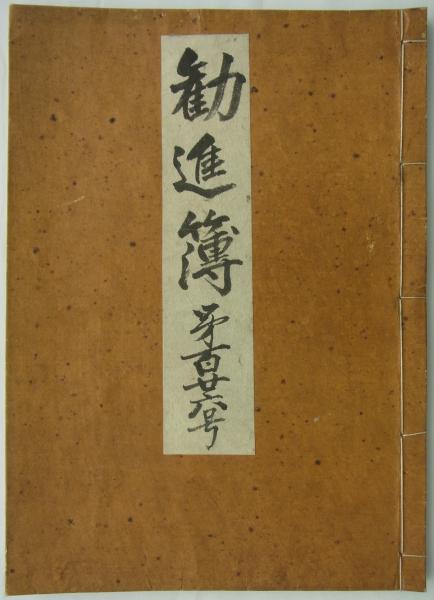 勧進簿 第百廿六号